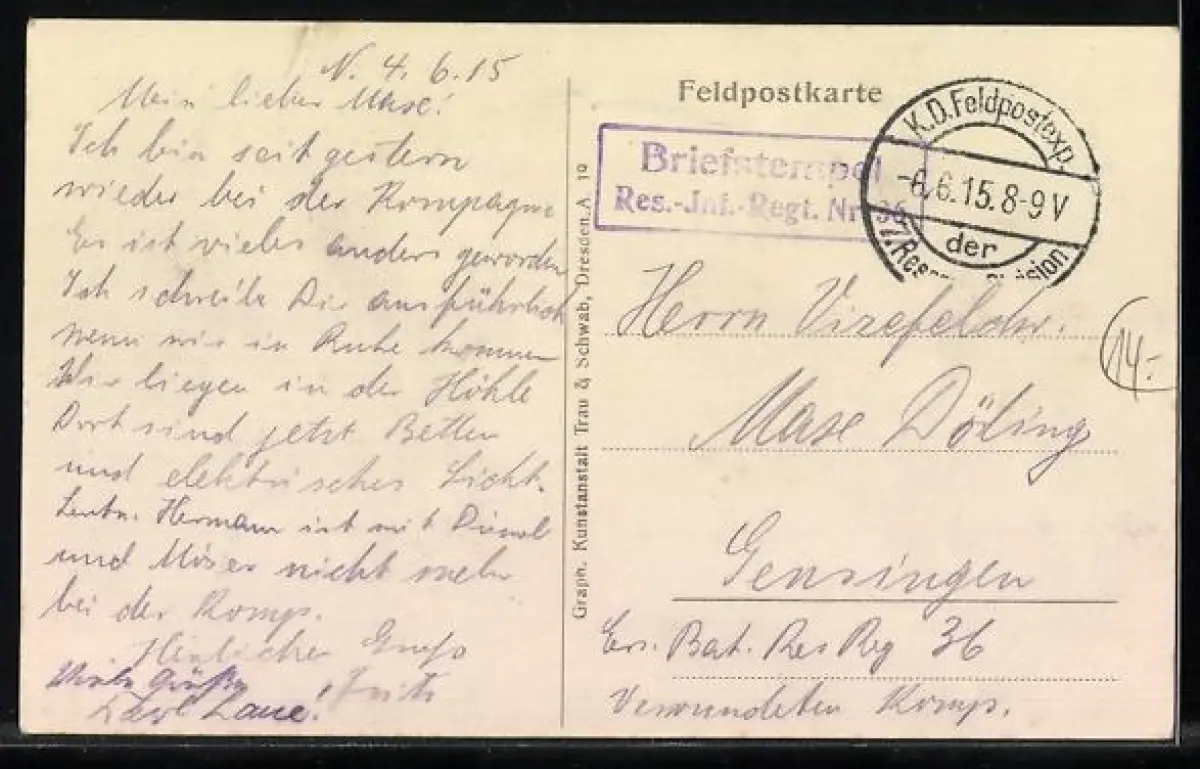 N. 4.6.15
Mein lieber Maxe!
Ich bin seit gestern
wieder bei der Kompagnie
Es ist vieles anders geworden
Ich schreibe Dir ausführlich
wenn wir in Ruhe kommen
Wir liegen in der Höhle
Dort sind jetzt Betten
und elektrisches Licht.
Leutn. Hermann ist mit
und Möser nicht mehr
bei der Komp.
Herzlichen Gruß
Fritz
Viele Grüße
Feldpostkarte
Briefstempel
Res.-Inf.-Regt. Nr. 36
K.D. Feldpostexp.
-6.6.15.8-9V
der
7. Reserve Division
Herrn Vizefeldw.
Maxe Döling
Gensingen
Ers. Bat. Res Reg 36
Verwundeten Komp.
14.-
Graph. Kunstanstalt Trau & Schwab, Dresden.A 19